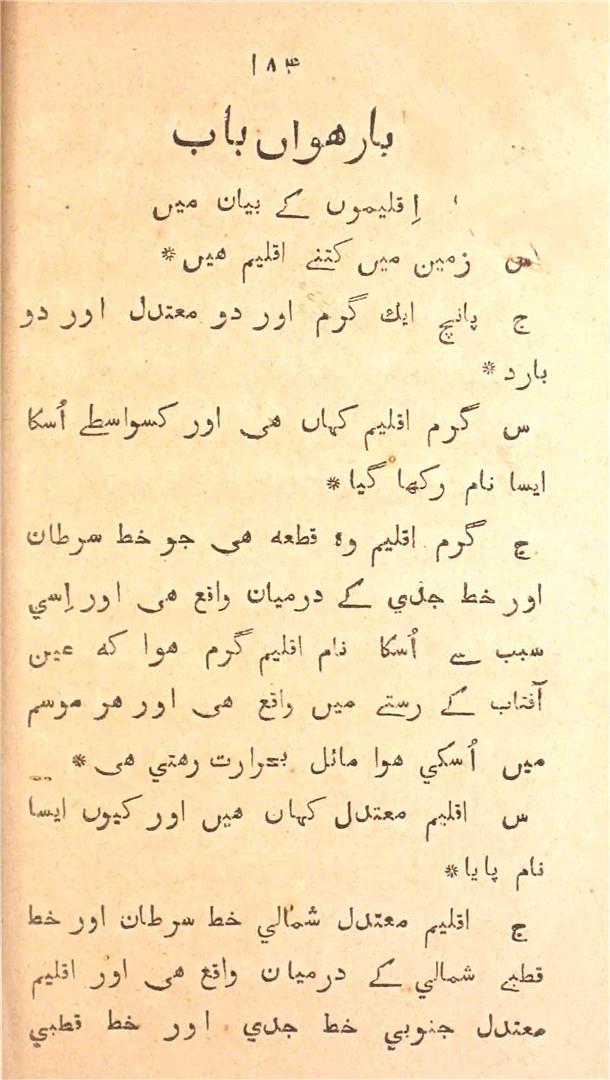 ۱۸۴
بارهواں باب
اِقلیموں کے بیان میں
س زمین میں کتنے اقلیم هیں *
ج پانچ ایك گرم اور دو معتدل اور دو
بارد *
س گرم اقلیم کہاں هی اور کسواسطے اُسکا
ایسا نام رکھا گیا *
ج گرم اقلیم وہ قطعه هی جو خط سرطان
اور خط جدي کے درمیان واقع هی اور اِسي
سبب سے اُسکا نام اقلیم گرم هوا که عین
آفتاب کے رستے میں واقع هی اور هر موسم
میں اُسکي هوا مائل بحرارت رهتي هی *
س اقلیم معتدل کہاں هیں اور کیوں ایسا
نام پایا *
ج اقلیم معتدل شمالي خط سرطان اور خط
قطبے شمالي کے درمیان واقع هی اور اقلیم
معتدل جنوبي خط جدي اور خط قطبي